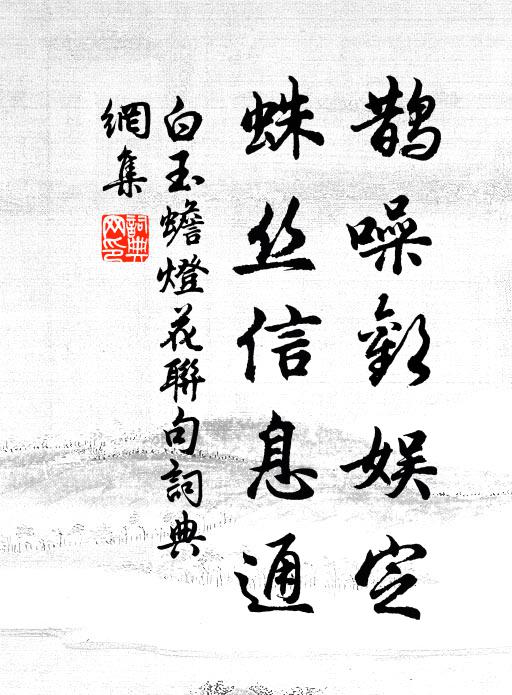 鵲噪歡娱定
蛛丝信息通
白玉蟾燈花聯句詞典
網集
詞典網印